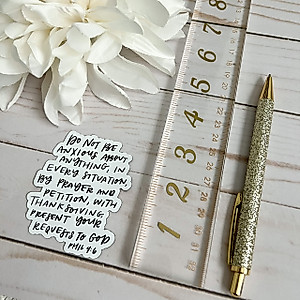 DO NOT BE
ANXIOUS ABOUT
ANYTHING, IN
EVERY SITUATION,
BY PRAYER AND
PETITION, WITH
THANKSGIVING
PRESENT YOUR
REQUESTS TO GOD
PHIL 4:6
1 2 3 4 5 6 7 8